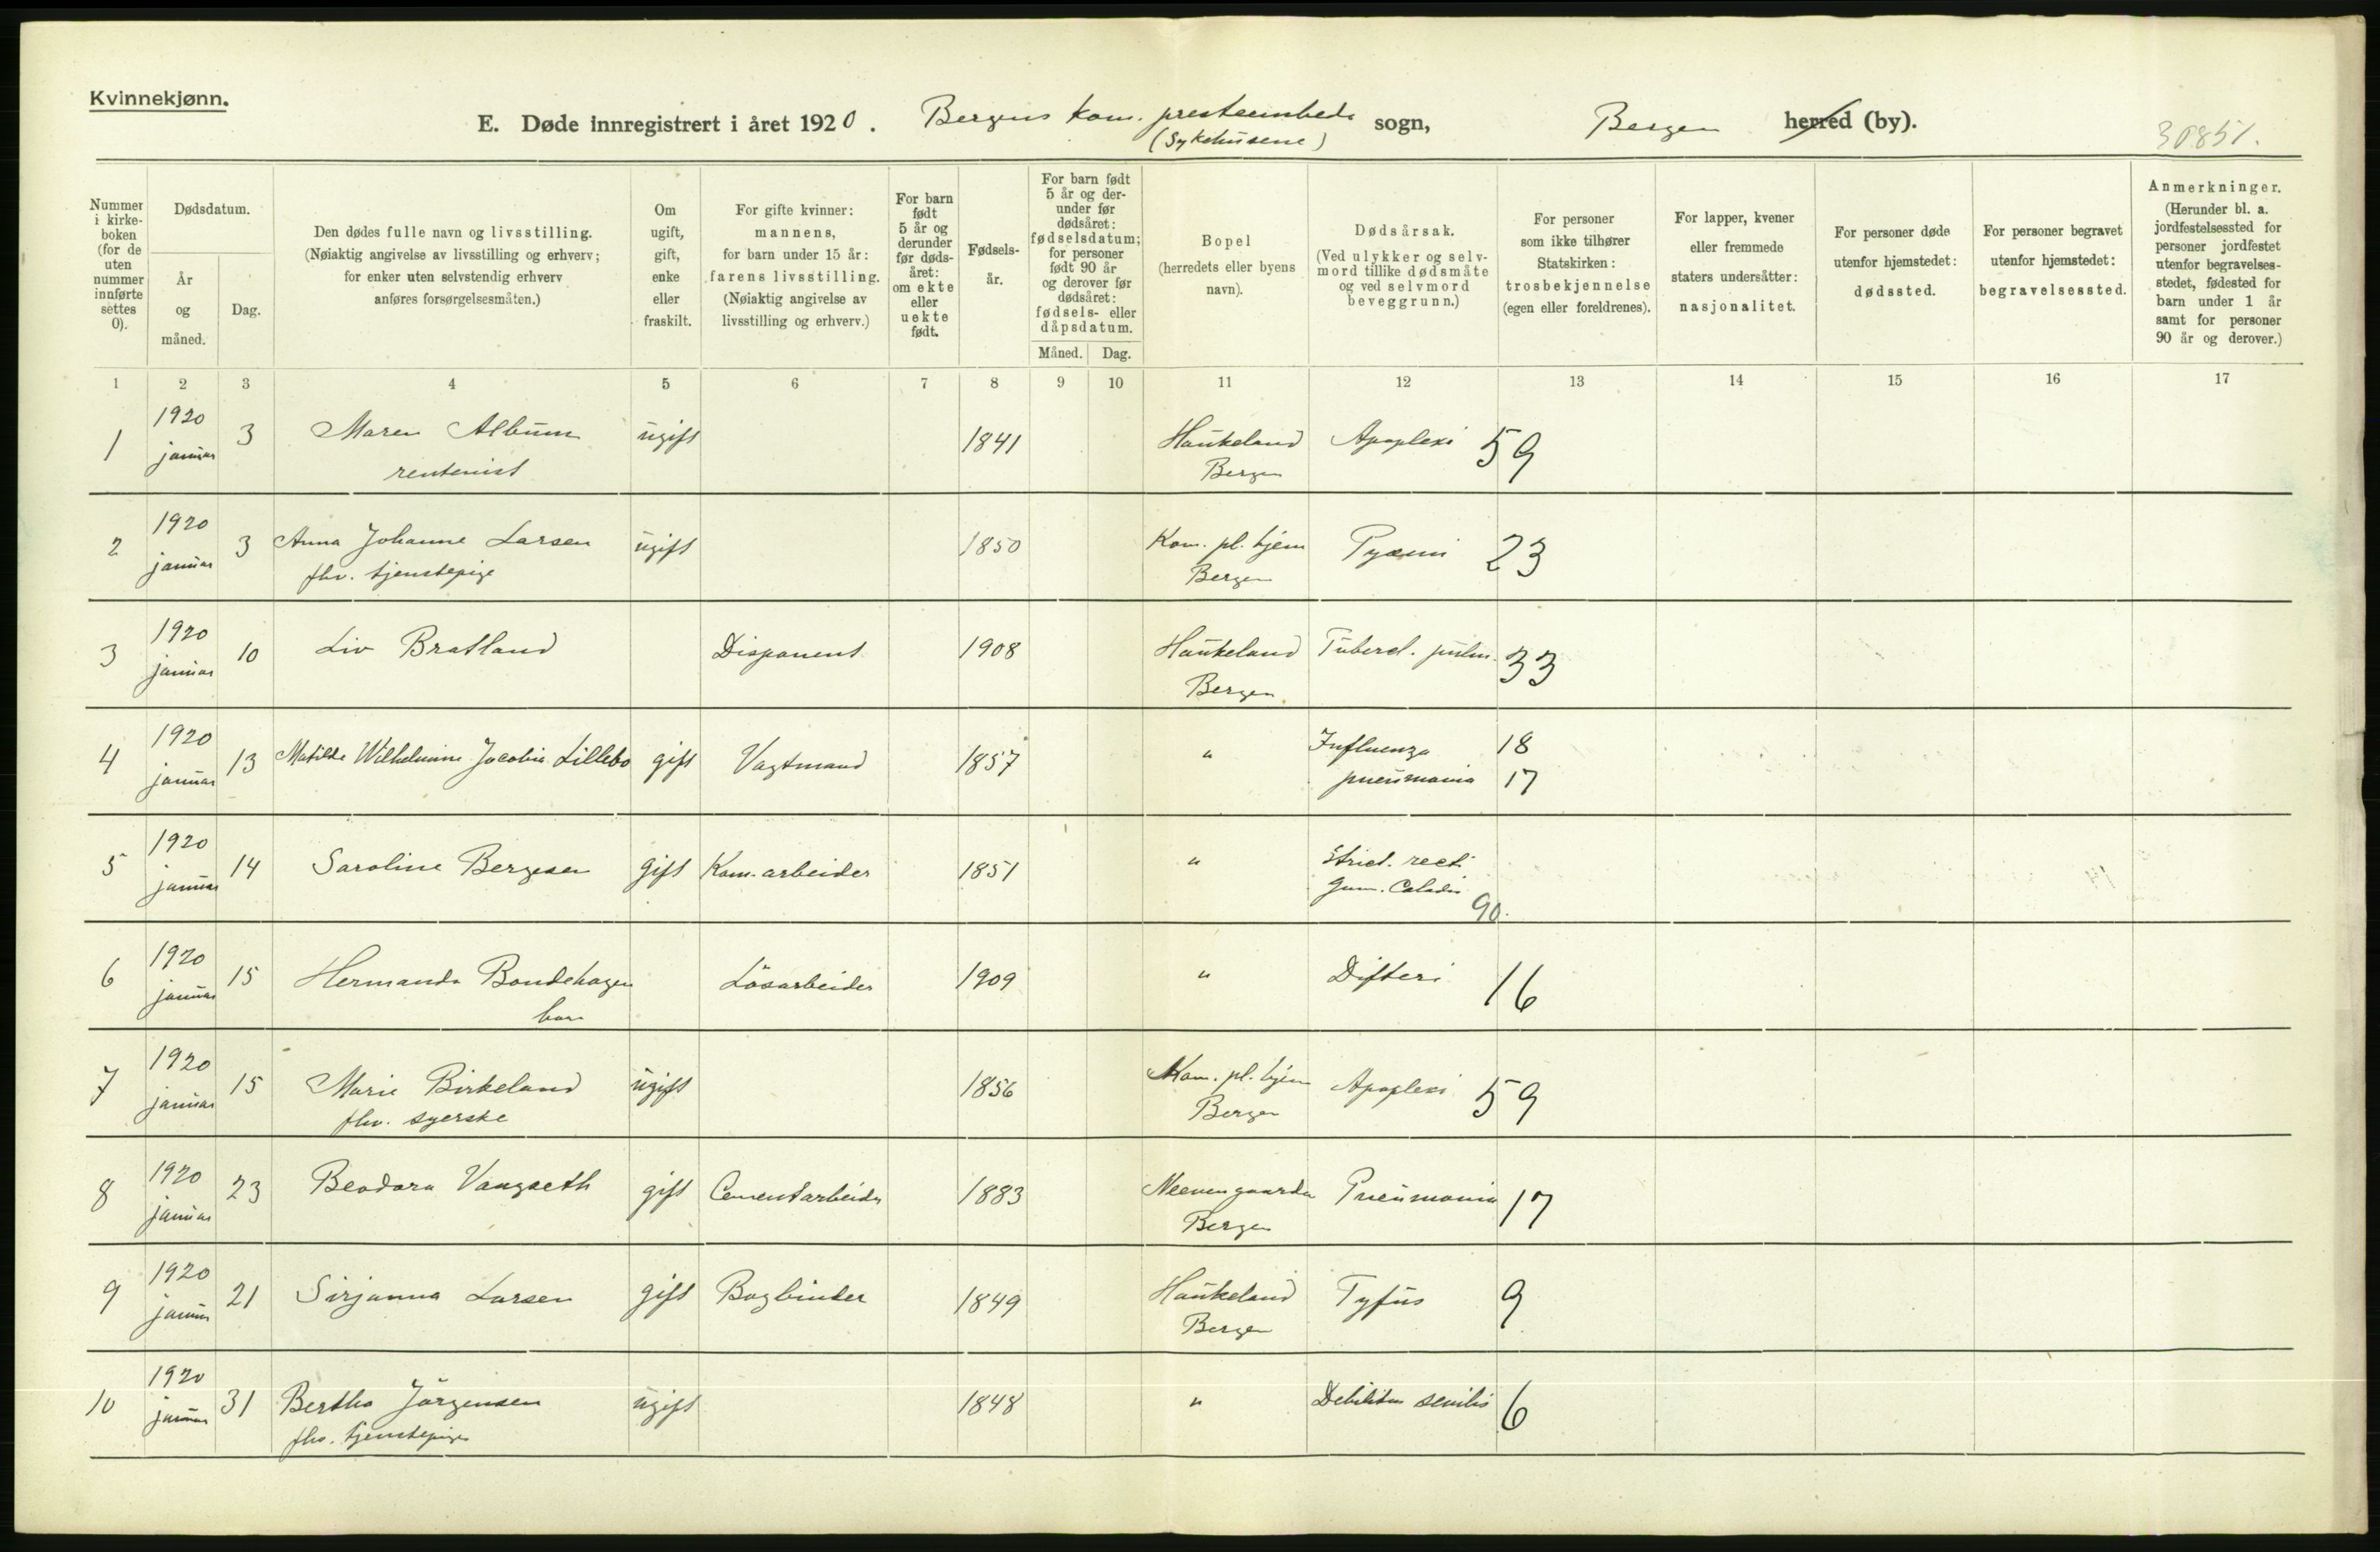 Kvinnekjønn.
E. Døde innregistrert i året 1920. Bergens kom. presteembede sogn, Bergen herred (by).
(Sykehusene)
30851.
Nummer i kirkeboken (for de uten nummer innførte settes 0).
Dødsdatum.
År og måned.
Dag.
Den dødes fulle navn og livsstilling.
(Nøiaktig angivelse av livsstilling og erhverv;
for enker uten selvstendig erhverv
anføres forsørgelsesmåten.)
Om ugift, gift, enke eller fraskilt.
For gifte kvinner:
mannens,
for barn under 15 år:
farens livsstilling.
(Nøiaktig angivelse av
livsstilling og erhverv.)
For barn født 5 år og derunder før dødsåret: om ekte eller uekte født.
Fødselsår.
For barn født 5 år og derunder før dødsåret: fødselsdatum; for personer født 90 år og derover før dødsåret: fødsels- eller dåpsdatum.
Måned. Dag.
Bopel
(herredets eller byens
navn).
Dødsårsak.
(Ved ulykker og selvmord tillike dødsmåte
og ved selvmord
beveggrunn.)
For personer
som ikke tilhører
Statskirken:
trosbekjennelse
(egen eller foreldrenes).
For lapper, kvener
eller fremmede
staters undersåtter:
nasjonalitet.
For personer døde
utenfor hjemstedet:
dødssted.
For personer begravet
utenfor hjemstedet:
begravelsessted.
Anmerkninger.
(Herunder bl. a.
jordfestelsessted for
personer jordfestet
utenfor begravelsesstedet, fødested for
barn under 1 år
samt for personer
90 år og derover.)
1 2 3 4 5 6 7 8 9 10 11 12 13 14 15 16 17
1 1920 januar 3 Maren Album ugift 1841 Haukeland Apoplexi 59
rentenist Bergen
2 1920 januar 3 Anna Johanne Larsen ugift 1850 Kom. pl. hjem Pyæmi 23
fhv. tjenstepige Bergen
3 1920 januar 10 Liv Bratland Disponent 1908 Haukeland Tubercl. pulm. 33
Bergen
4 1920 januar 13 Matilde Wilhelmine Jacobia Lillebo gift Vagtmand 1857 " Influenza 18
pneumonia 17
5 1920 januar 14 Saroline Bergesen gift Kom. arbeider 1851 " Strict. recti
90.
6 1920 januar 15 Hermanda Bondehagen Lösarbeider 1909 " Difteri 16
barn
7 1920 januar 15 Marie Birkeland ugift 1856 Kom. pl. hjem Apoplexi 59
fhv. syerske Bergen
8 1920 januar 23 Beadora Vangseth gift Cementarbeider 1883 Neevengaarden Pneumonia 17
Bergen
9 1920 januar 21 Sirjanna Larsen gift Bogbinder 1849 Haukeland Tyfus 9
Bergen
10 1920 januar 31 Bertha Jörgensen ugift 1848 " Debilitas senilis 6
fhv. tjenstepige